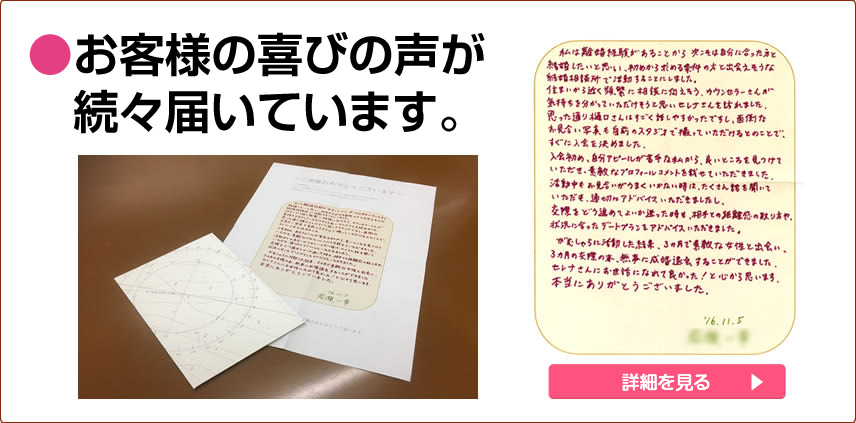 ●お客様の喜びの声が
続々届いています。
私は離婚経験があることから 次こそは自分に合った方と
結婚したいと思い、初めから求める条件の方と出会えそうな
結婚相談所で活動することにしました。
住まいから近く頻繁に相談に伺えそう、カウンセラーさんが
気持ちを分かっていただけそうと思いセレナさんを訪れました。
思った通り樋口さんはすごく話しやすかったですし、面倒な
お見合い写真も自前のスタジオで撮っていただけるとのことで、
すぐに入会を決めました。
入会初め、自分アピールが苦手な私から、良いところを見つけて
いただき、素敵なプロフィールコメントを載せていただきました。
活動中もお見合いがうまくいかない時は、たくさん話を聞いて
いただき、適切なアドバイスいただきましたし、
交際をどう進めてよいか迷った時も、相手との距離感の取り方や、
状況に合ったデートプランをアドバイスいただきました。
がむしゃらに活動した結果、3ヵ月で素敵な女性と出会い、
3ヵ月の交際の末、無事に成婚退会することができました。
セレナさんにお世話になれて良かった!と心から思います。
本当にありがとうございました。
'16.11.5
詳細を見る